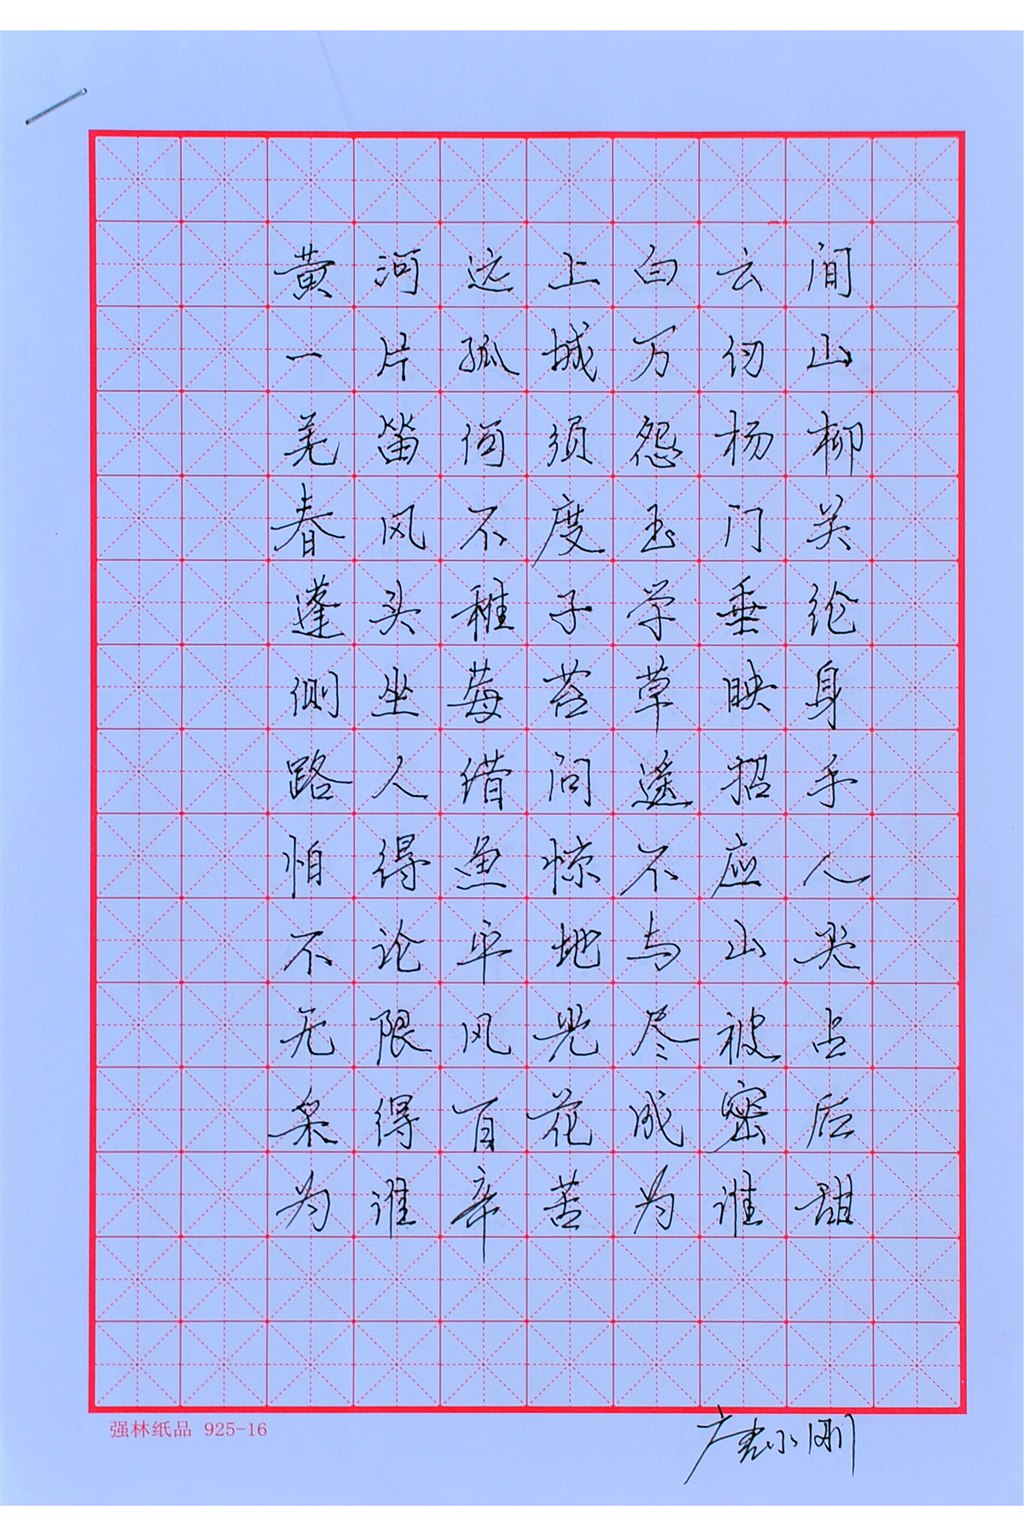 黄河远上白云间
一片孤城万仞山
羌笛何须怨杨柳
春风不度玉门关
蓬头稚子学垂纶
侧坐莓苔草映身
路人借问遥招手
怕得鱼惊不应人
不论平地与山尖
无限风光尽被占
采得百花成密后
为谁辛苦为谁甜
强林纸品 925-16
小刚